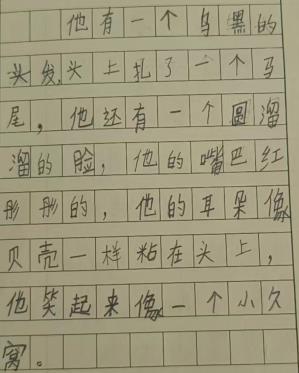 他有一个乌黑的
头发,头上扎了一个马
尾，他还有一个圆溜
溜的脸，他的嘴巴红
彤彤的，他的耳朵像
贝壳一样粘在头上，
他笑起来像一个小久
窝。